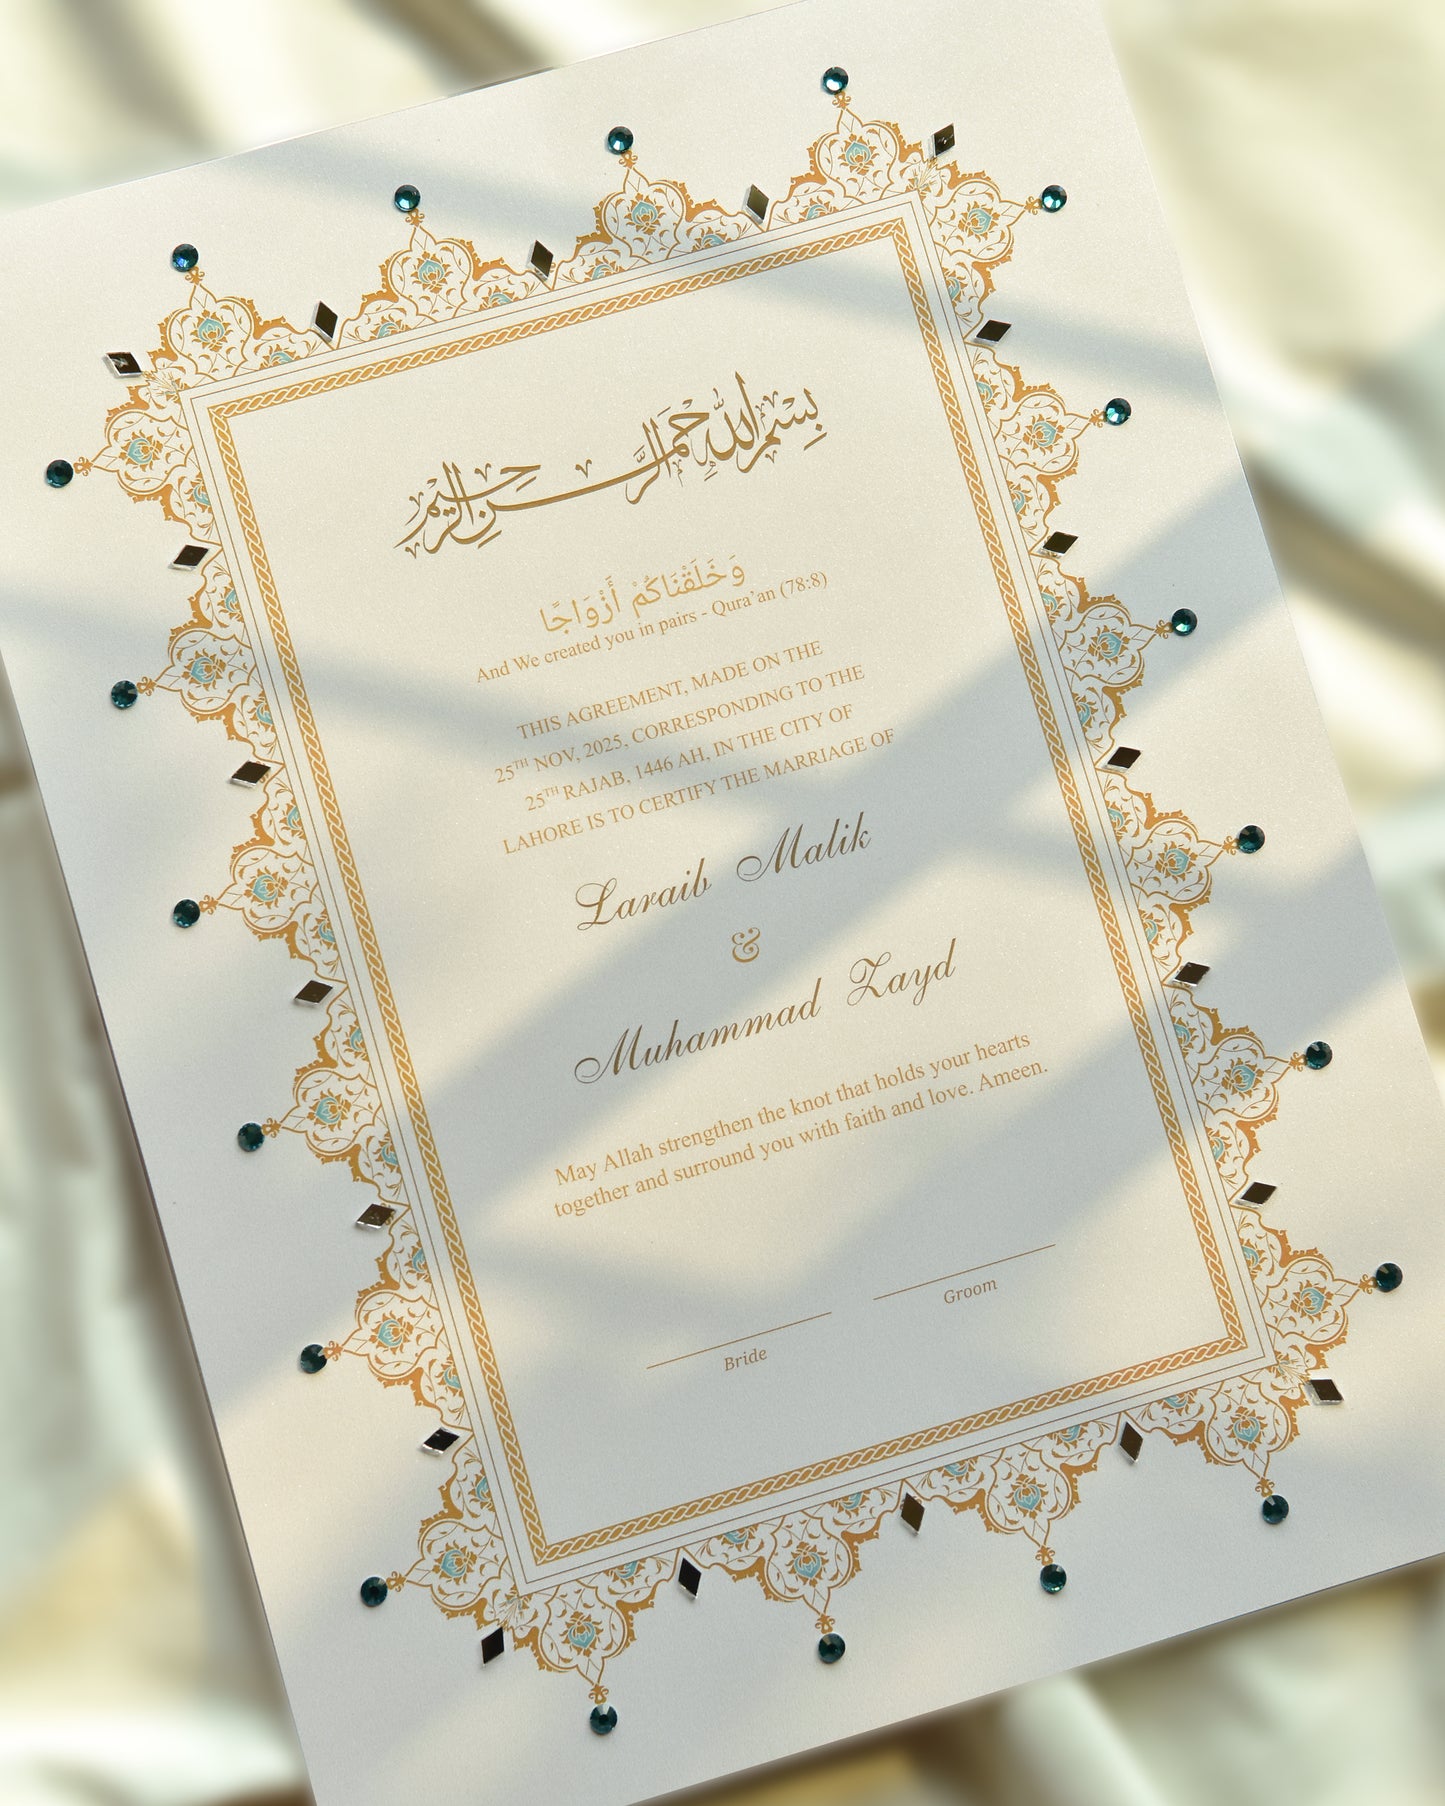 بِسْمِ اللهِ الرَّحْمَنِ الرَّحِيمِ
وَخَلَقْنَاكُمْ أَزْوَاجًا
And We created you in pairs - Qura'an (78:8)
THIS AGREEMENT, MADE ON THE
25TH NOV, 2025, CORRESPONDING TO THE
25TH RAJAB, 1446 AH, IN THE CITY OF
LAHORE IS TO CERTIFY THE MARRIAGE OF
Laraib Malik
&
Muhammad Zayd
May Allah strengthen the knot that holds your hearts
together and surround you with faith and love. Ameen.
Bride
Groom